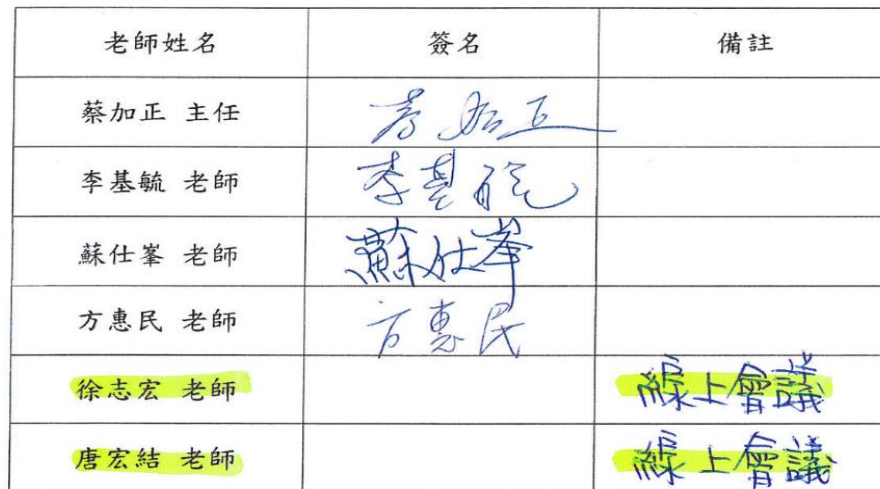 老師姓名 簽名 備註
蔡加正 主任 蔡加正
李基毓 老師 李基毓
蘇仕峯 老師 蘇仕峯
方惠民 老師 方惠民
徐志宏 老師 線上會議
唐宏結 老師 線上會議